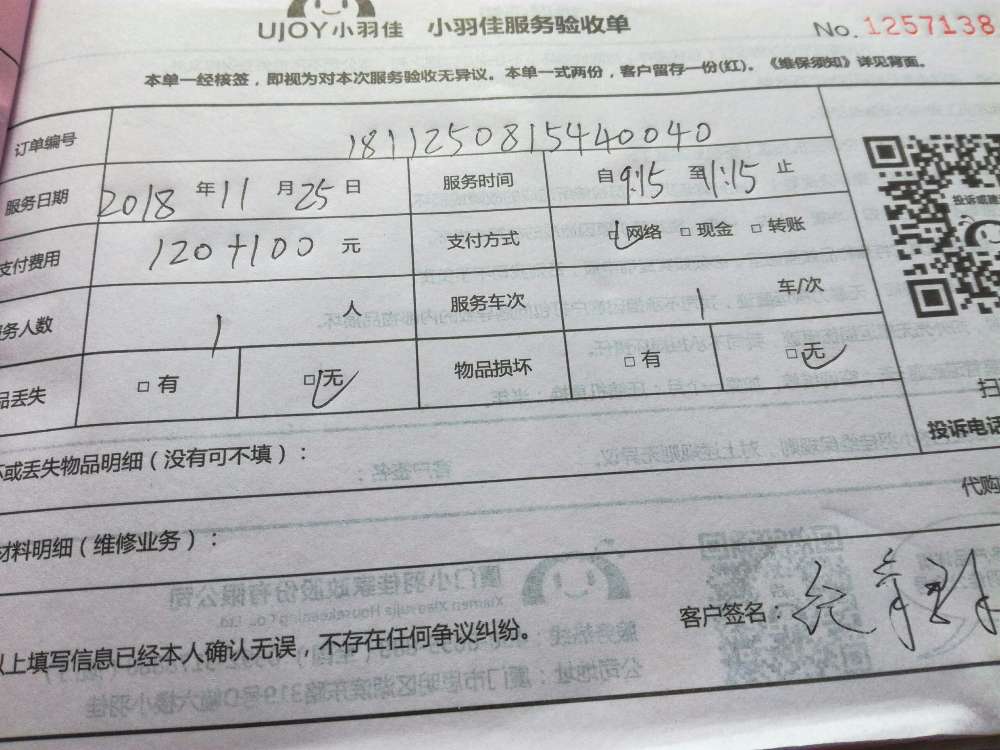 UJOY小羽佳 小羽佳服务验收单
No. 1257138
本单一经核签，即视为对本次服务验收无异议。本单一式两份，客户留存一份(红)。《维保须知》详见背面。
订单编号 1811250815440040
服务日期 2018 年 11 月 25 日 服务时间 自 9:15 至 11:15 止
支付费用 120+100 元 支付方式 网络 □ 现金 □ 转账
务人数 1 人 服务车次 1 车/次
品丢失 □ 有 □ 无 物品损坏 □ 有 □ 无
扫
投诉电话
坏或丢失物品明细（没有可不填）：
代购
材料明细（维修业务）：
客户签名：
以上填写信息已经本人确认无误，不存在任何争议纠纷。